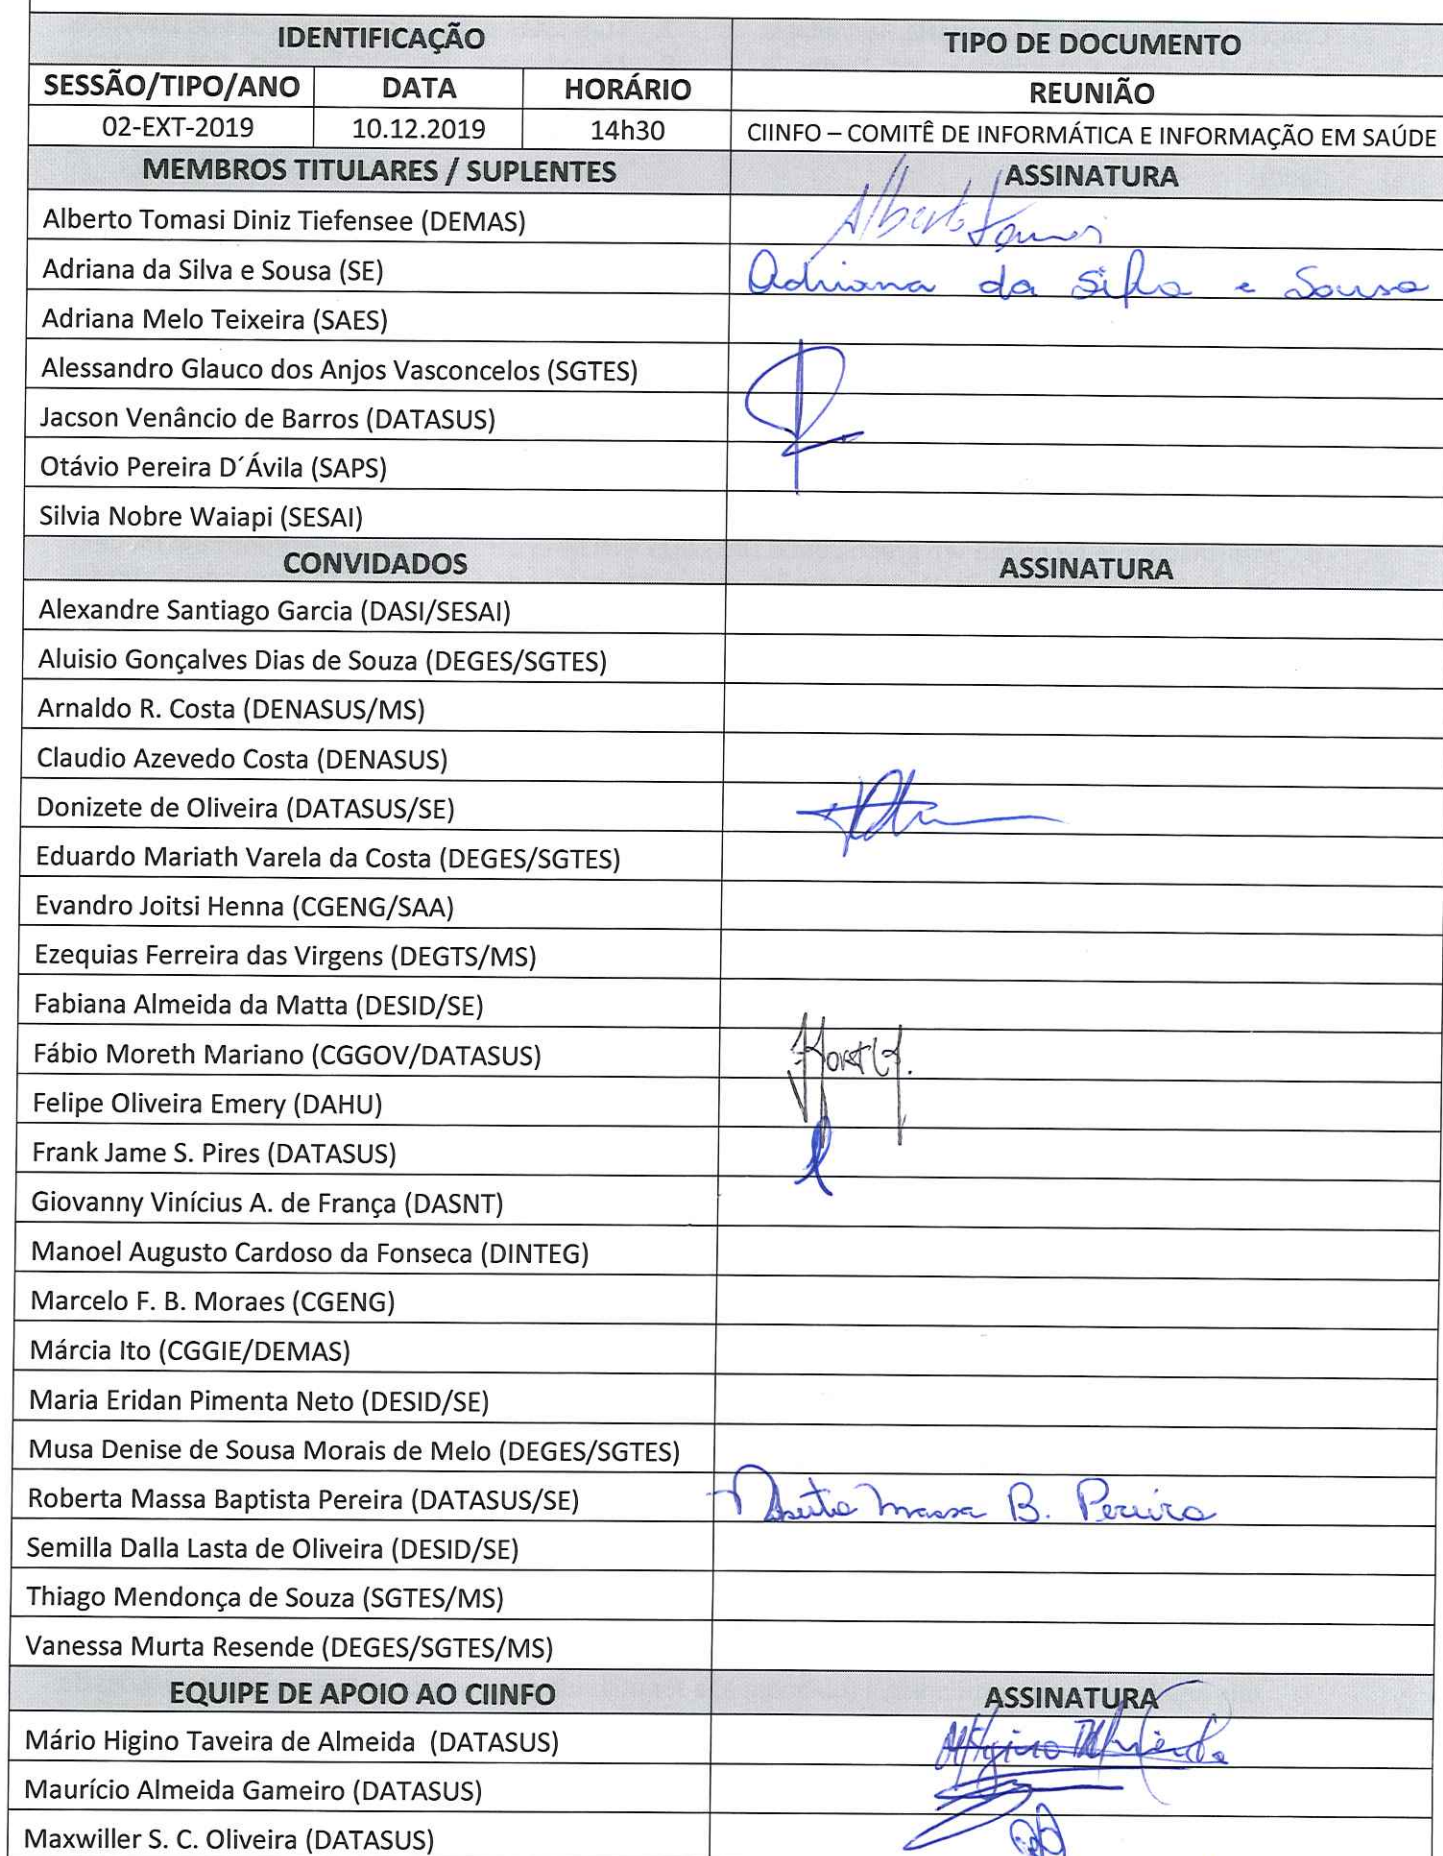 IDENTIFICAÇÃO TIPO DE DOCUMENTO
SESSÃO/TIPO/ANO DATA HORÁRIO REUNIÃO
02-EXT-2019 10.12.2019 14h30 CIINFO – COMITÊ DE INFORMÁTICA E INFORMAÇÃO EM SAÚDE
MEMBROS TITULARES / SUPLENTES ASSINATURA
Alberto Tomasi Diniz Tiefensee (DEMAS) Alberto Tomasi
Adriana da Silva e Sousa (SE) Adriana da Silva e Sousa
Adriana Melo Teixeira (SAES)
Alessandro Glauco dos Anjos Vasconcelos (SGTES)
Jacson Venâncio de Barros (DATASUS)
Otávio Pereira D´Ávila (SAPS)
Silvia Nobre Waiapi (SESAI)
CONVIDADOS ASSINATURA
Alexandre Santiago Garcia (DASI/SESAI)
Aluisio Gonçalves Dias de Souza (DEGES/SGTES)
Arnaldo R. Costa (DENASUS/MS)
Claudio Azevedo Costa (DENASUS)
Donizete de Oliveira (DATASUS/SE)
Eduardo Mariath Varela da Costa (DEGES/SGTES)
Evandro Joitsi Henna (CGENG/SAA)
Ezequias Ferreira das Virgens (DEGTS/MS)
Fabiana Almeida da Matta (DESID/SE)
Fábio Moreth Mariano (CGGOV/DATASUS)
Felipe Oliveira Emery (DAHU)
Frank Jame S. Pires (DATASUS)
Giovanny Vinícius A. de França (DASNT)
Manoel Augusto Cardoso da Fonseca (DINTEG)
Marcelo F. B. Moraes (CGENG)
Márcia Ito (CGGIE/DEMAS)
Maria Eridan Pimenta Neto (DESID/SE)
Musa Denise de Sousa Morais de Melo (DEGES/SGTES)
Roberta Massa Baptista Pereira (DATASUS/SE) Roberta Massa B. Pereira
Semilla Dalla Lasta de Oliveira (DESID/SE)
Thiago Mendonça de Souza (SGTES/MS)
Vanessa Murta Resende (DEGES/SGTES/MS)
EQUIPE DE APOIO AO CIINFO ASSINATURA
Mário Higino Taveira de Almeida (DATASUS)
Maurício Almeida Gameiro (DATASUS)
Maxwiller S. C. Oliveira (DATASUS)